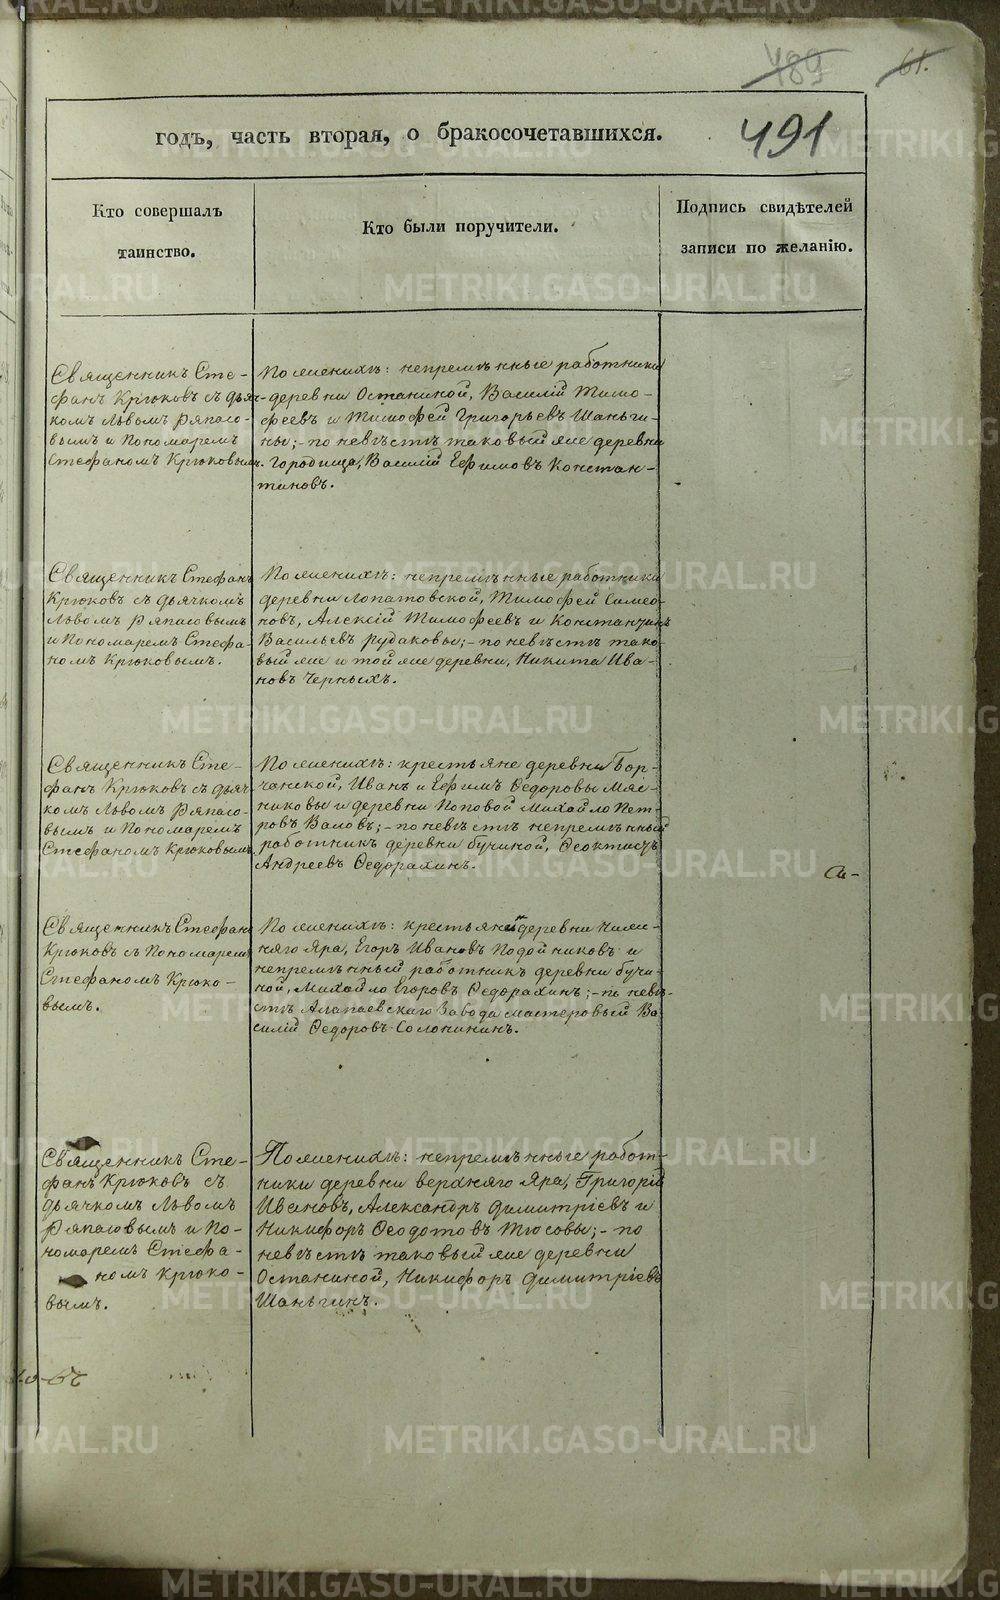 489 61.
годъ, часть вторая, о бракосочетавшихся. 491
Кто совершалъ
таинство.
Кто были поручители.
Подпись свидѣтелей
записи по желанію.
Священникъ Сте-
фанъ Крюковъ съ дьяч-
комъ Львомъ Ряпасо-
вымъ и Пономаремъ
Стефаномъ Крюковымъ.
По женихѣ: непремѣнные работники
деревни Останиной, Василій Тимо-
феевъ и Тимофей Григорьевъ Шаньги-
ны; - по невѣстѣ таковый же деревни
Городища, Василій Ефимовъ Констан-
тиновъ.
Священникъ Стефанъ
Крюковъ съ дьячкомъ
Львомъ Ряпасовымъ
и Пономаремъ Стефа-
номъ Крюковымъ.
По женихѣ: непремѣнные работники
деревни Лопатовской, Тимофей Симео-
новъ, Алексій Тимофеевъ и Константинъ
Васильевъ Рудаковы; - по невѣстѣ тако-
вый же и той же деревни, Никита Ива-
новъ Черныхъ.
Священникъ Сте-
фанъ Крюковъ съ дьяч-
комъ Львомъ Ряпасо-
вымъ и Пономаремъ
Стефаномъ Крюковымъ.
По женихѣ: крестьяне деревни Бор-
чанской, Иванъ и Ефимъ Федоровы Мяс-
никовы и деревни Поповой Михайло Пет-
ровъ Валовъ; - по невѣстѣ непремѣнный
работникъ деревни Бучиной, Феоктистъ
Андреевъ Федорахинъ.
Си-
Священникъ Стефанъ
Крюковъ съ Пономаремъ
Стефаномъ Крюко-
вымъ.
По женихѣ: крестьянинъ деревни Ниж-
няго Яра, Егоръ Ивановъ Подойниковъ и
непремѣнный работникъ деревни Бучи-
ной, Михайло Егоровъ Федорахинъ; - по невѣ-
стѣ Алапаевскаго Завода мастеровый Ва-
силій Федоровъ Солонининъ.
Священникъ Сте-
фанъ Крюковъ съ
дьячкомъ Львомъ
Ряпасовымъ и По-
номаремъ Стефа-
номъ Крюко-
вымъ.
По женихѣ: непремѣнные работ-
ники деревни верхняго Яра, Григорій
Ивановъ, Александръ Димитріевъ и
Никифоръ Феодотовъ Тюсовы; - по
невѣстѣ таковый же деревни
Останиной, Никифоръ Димитріевъ
Шаньгинъ.
METRIKI.GASO-URAL.RU